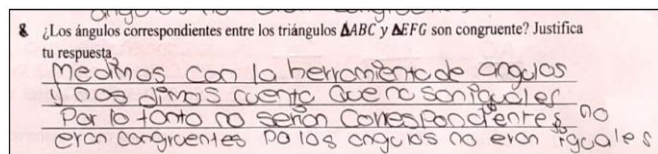 8. ¿Los ángulos correspondientes entre los triángulos ΔABC y ΔEFG son congruente? Justifica
tu respuesta.
Medimos con la herramienta de angulos
y nos dimos cuenta que no son iguales
Por lo tanto no serían correspondientes no
eran congruentes pa los angulos no eran iguales